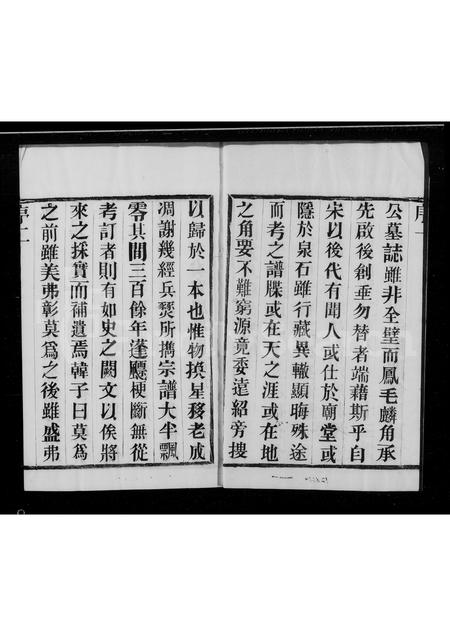 序一
公墓誌雖非全璧而鳳毛麟角承
先啟後創垂勿替者端藉斯乎自
宋以後代有聞人或仕於廟堂或
隱於泉石雖行藏異轍顯晦殊途
而考之譜牒或在天之涯或在地
之角要不難窮源竟委遠紹旁搜
以歸於一本也惟物換星移老成
凋謝幾經兵燹所攜宗譜大半飄
零其間三百餘年蓬飄梗斷無從
考訂者則有如史之闕文以俟將
來之採實而補遺焉韓子曰莫為
之前雖美弗彰莫為之後雖盛弗
序二